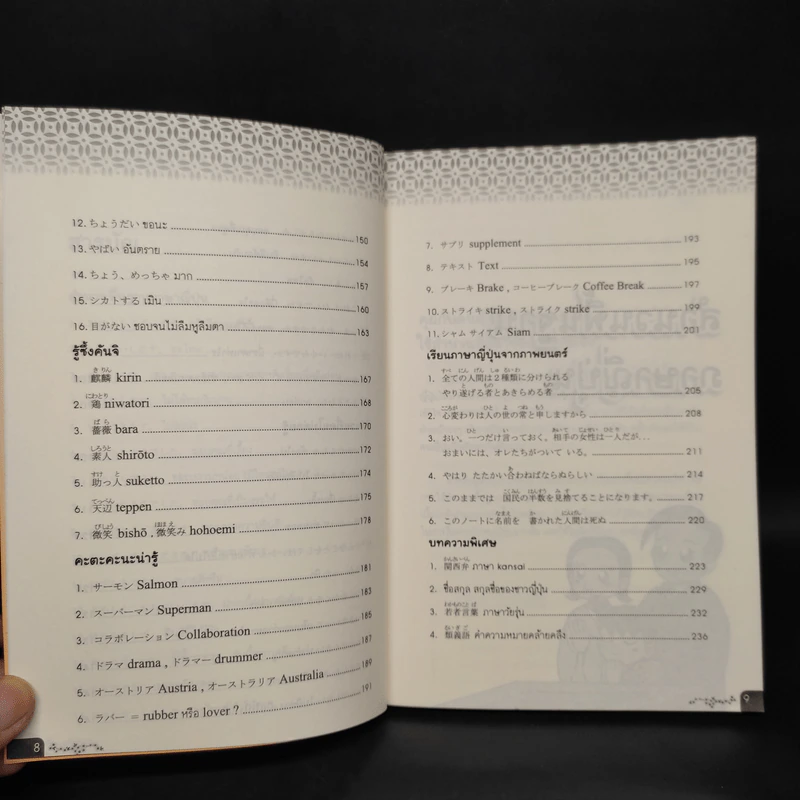 12. ちょうだい ขอนะ 150
13. やばい อันตราย 154
14. ちょう、めっちゃ มาก 157
15. シカトする เมิน 160
16. 目がない ชอบจนไม่ลืมหูลืมตา 163
รู้ซึ้งคันจิ
1. 麒麟 kirin 167
2. 鶏 niwatori 168
3. 薔薇 bara 170
4. 素人 shirōto 172
5. 助っ人 suketto 174
6. 天辺 teppen 175
7. 微笑 bishō , 微笑み hohoemi 178
คะตะคะนะน่ารู้
1. サーモン Salmon 181
2. スーパーマン Superman 183
3. コラボレーション Collaboration 185
4. ドラマ drama , ドラマー drummer 187
5. オーストリア Austria , オーストラリア Australia 189
6. ラバー = rubber หรือ lover ? 191
8
7. サプリ supplement 193
8. テキスト Text 195
9. ブレーキ Brake , コーヒーブレーク Coffee Break 197
10. ストライキ strike , ストライク strike 199
11. シャム サイアム Siam 201
เรียนภาษาญี่ปุ่นจากภาพยนตร์
1. 全ての人間は2種類に分けられる
やり遂げる者とあきらめる者 205
2. 心変わりは人の世の常と申しますから 208
3. おい。一つだけ言っておく。相手の女性は一人だが...
おまいには、オレたちがついて いる。 211
4. やはり たたかい合わねばならぬらしい 214
5. このままでは 国民の半数を見捨てることになります。 217
6. このノートに名前を 書かれた人間は死ぬ 220
บทความพิเศษ
1. 関西弁 ภาษา kansai 223
2. ชื่อสกุล สกุลชื่อของชาวญี่ปุ่น 229
3. 若者言葉 ภาษาวัยรุ่น 232
4. 類義語 คำความหมายคล้ายคลึง 236
9